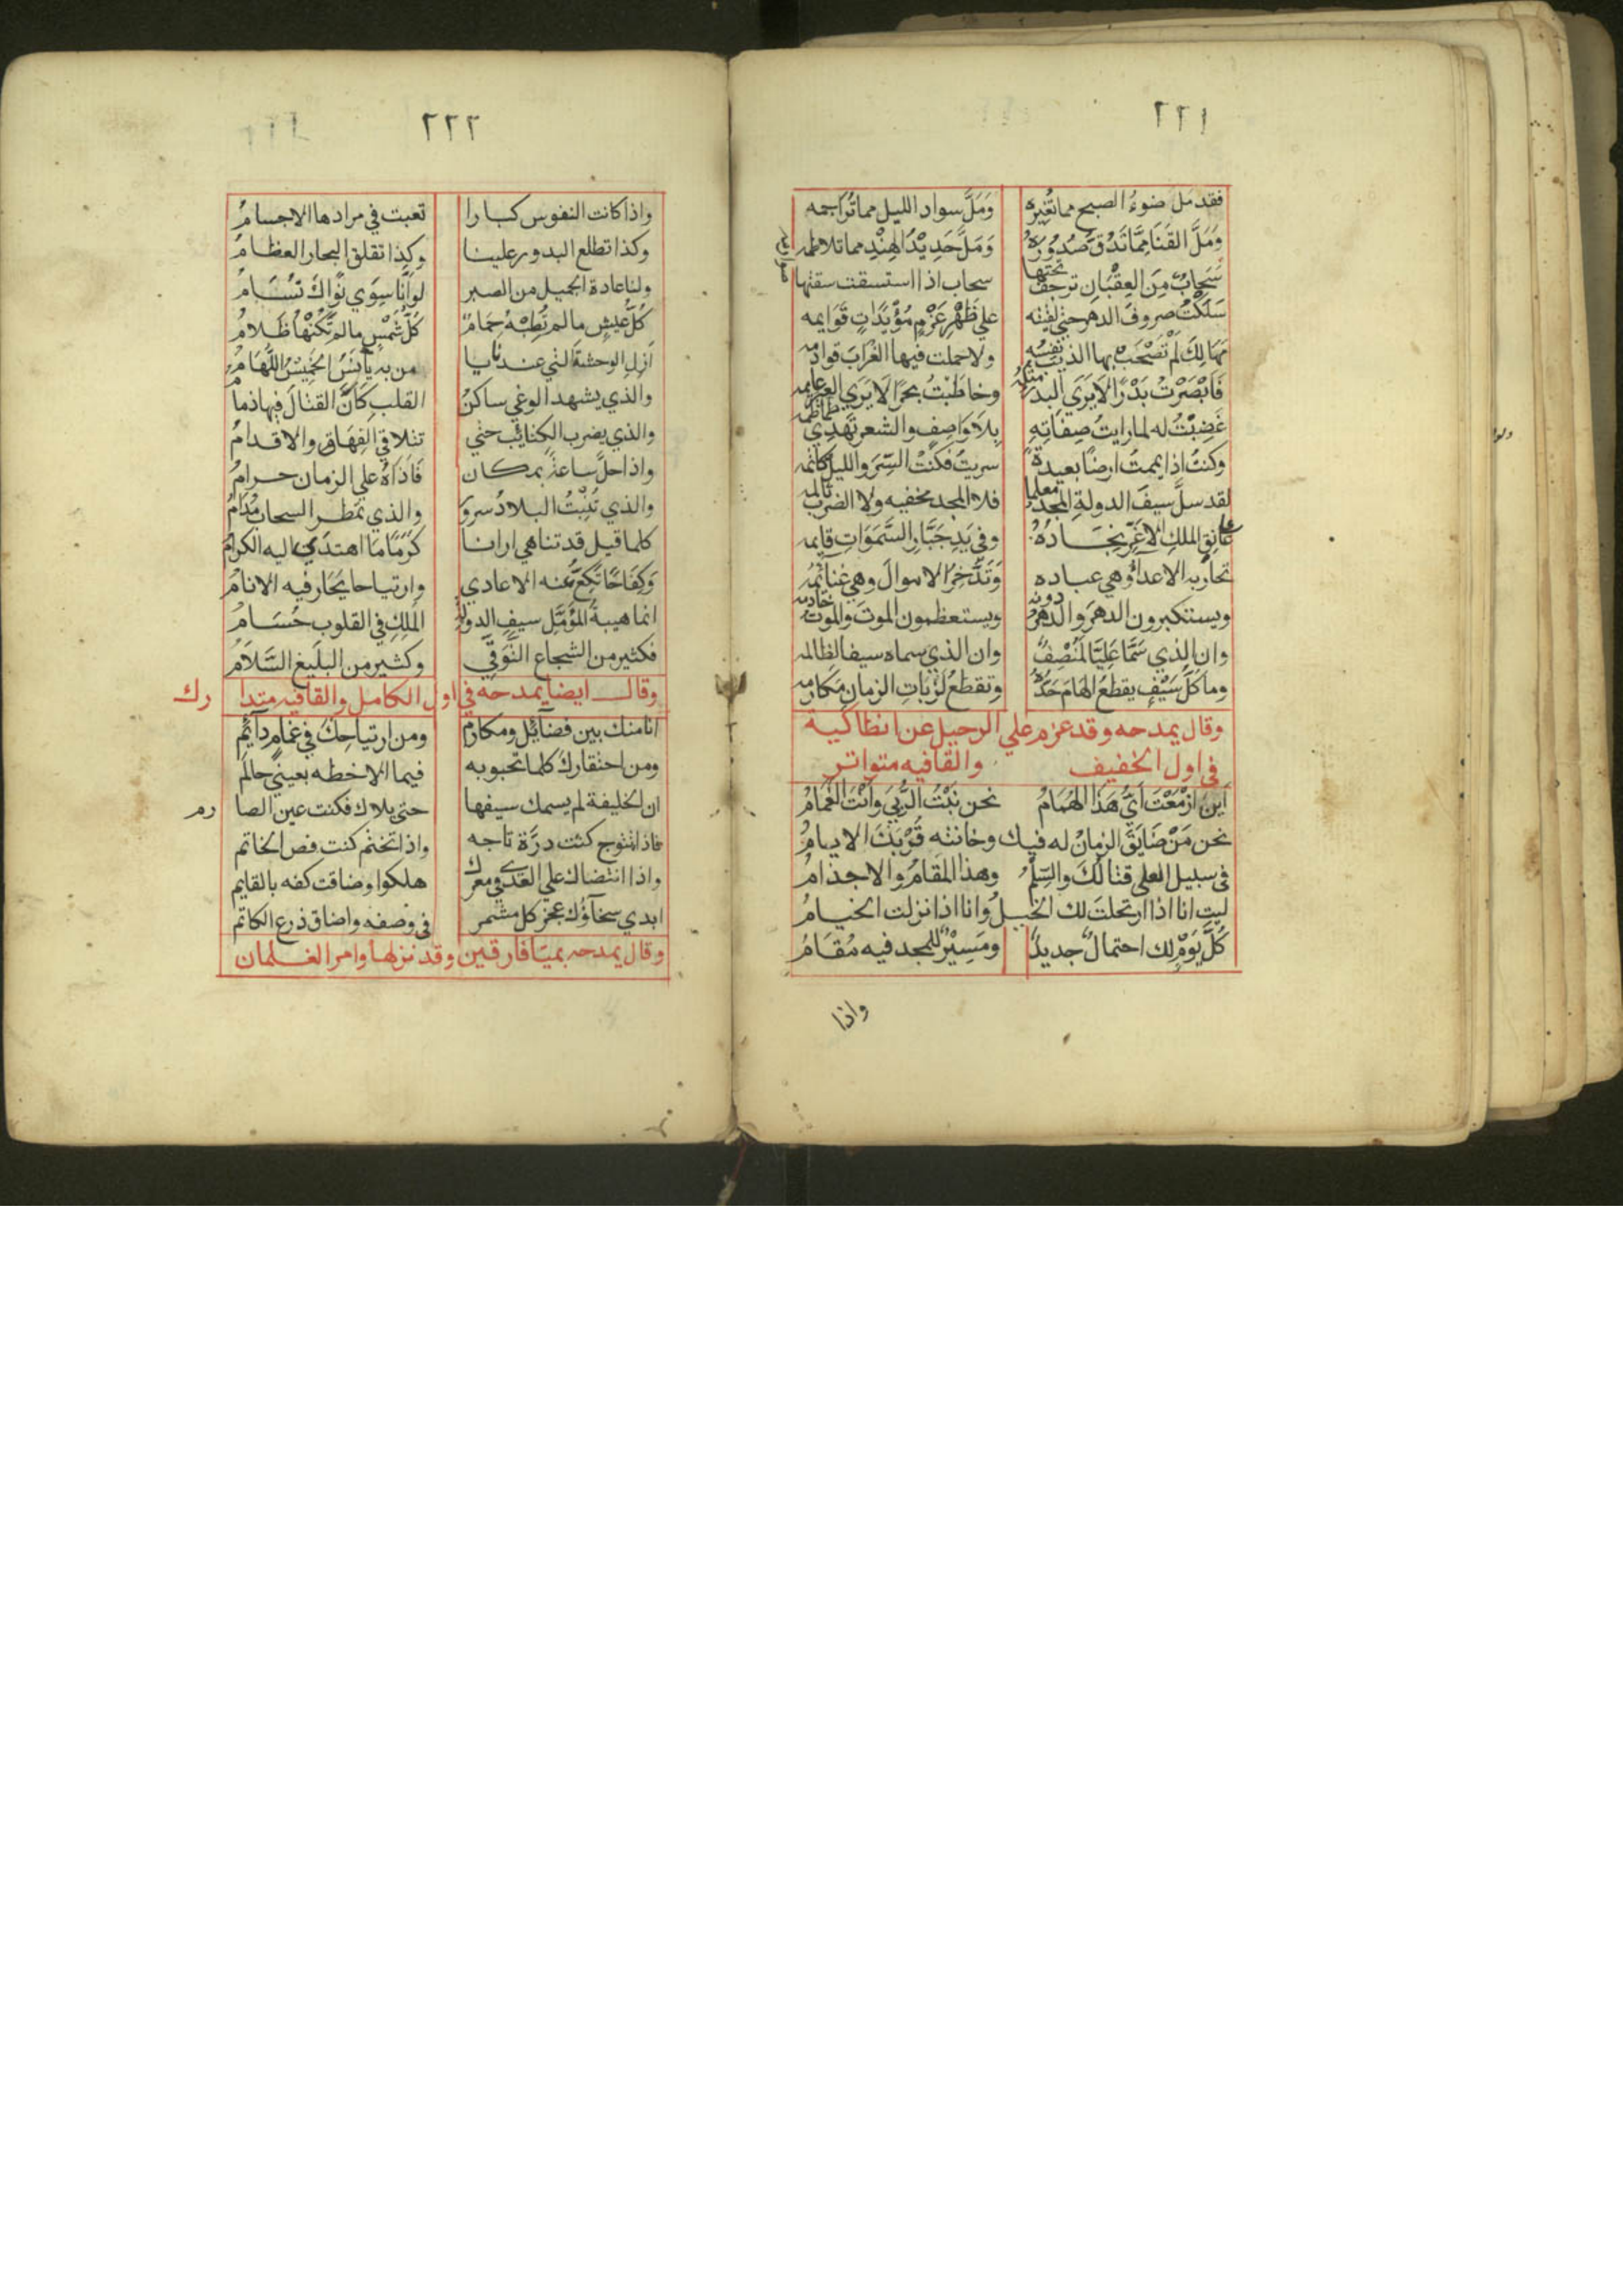 ٢٢١
فقد مل ضوءُ الصبح مما تُغيره وَمَلَّ سواد الليل مما تُزاحمه
وَمَلَّ القَنَا مِمَّا تَدُقُّ صُدُورَهُ وَمَلَّ حَدِيْدُ الهِنْدِ مما تلاطمه
سَحَابٌ مِنَ العِقْبَانِ ترحف تحتها سحاب اذا استسقت سقتها صوارمه
سَلَكْتُ صروفَ الدهر حتي لقيته علي ظَهْرِ عَزْمٍ مُؤيَدَاتٍ قَوَايمه
مَهَالِكَ لَمْ تَصْحَبْ بها الذيب نفسُه ولا حملت فيها الغُرَابَ قوادمه
فَاَبْصَرْتُ بَدْرًا لاَ يَرَي البدرُ مثلهُ وخاطَبْتُ بحرًا لاَ يَرَي العبر عايمه
غَضِبْتُ له لما رايتُ صِفَاتِهِ بِلاَ وَاصِفٍ والشعر تَهْذِي طماطمه
وكنتُ اذا يممتُ ارضًا بعيدةً سريتُ فكنْتُ السِّرَ والليلُ كاتمه
لقد سلَّ سيفَ الدولةِ المجدُ معلما فلا المجد مخفيه ولا الضربُ ثالمه
علي عَاتِقِ الملكِ الاَغَرِّ نِجَادُهُ وفي يَدِ جَبَّارِ السَّمَوَاتِ قايمه
تحاربه الاعداُ وهي عباده وَتَدَّخِرُ الاموالَ وهي غنائمُه
ويستكبرون الدهرَ والدهرُ دونه ويستعظمون الموتَ والموتُ خادمه
وان الذي سَمَّا عَلِيًّا لَمُنْصِفٌ وان الذي سماه سيفا لظالمه
وما كلُّ سَيْفٍ يقطعُ الهَامَ حَدُّهُ وتقطعُ لَزْبَاتِ الزمانِ مَكَارمه
وقال يمدحه وقد عزم علي الرحيل عن انطاكية
في اول الخفيف والقافيه متواتر
اَيْنَ اَزْمَعْتَ اَيُّ هَذَا الهُمَامُ نحن نَبْتُ الرُّبَي وَاَنْتَ الغَمَامُ
نحن مَنْ ضَايَقَ الزمانُ له فيك وخانته قُرْبَكَ الايامُ
في سبيل العلي قتالُكَ والسِّلْمُ وهذا المَقَامُ والاجذامُ
ليت انا اذا ارتحلتَ لك الخيلُ وانا اذا نزلت الخيامُ
كُلَّ يَوْمٍ لك احتمالٌ جديدٌ ومَسِيْرٌ للمجد فيه مُقَامُ
واذا
٢٢٢
واذا كانت النفوس كبارا تعبت في مرادها الاجسامُ
وكذا تطلع البدور علينا وكذا تقلق البحار العظامُ
ولنا عادة الجميل من الصبر لو اَنَّا سِوَي نَوَاكَ تُسَامُ
كُلُّ عيشٍ ما لم تُطِبْهُ حِمَامٌ كُلُّ شَمْسٍ ما لم تَكُنْهَا ظَلامُ
اَزِلِ الوحشةَ التي عندنا يا من به يأنَسُ الخَمِيْسُ اللُّهَامُ
والذي يشهد الوغي ساكنُ القلبِ كَاَنَّ القتالَ فيها ذمامُ
والذي يضرب الكتائب حتي تتلاقي الفِهَاقُ والاقدامُ
واذا حلَّ ساعةً بمكان فَاَذَاهُ علي الزمان حرامُ
والذي تُنْبِتُ البلادُ سرورٌ والذي تمطر السحاب مُدَامُ
كلما قيل قد تناهي ارانا كَرَمًا مَا اهتدَي اليه الكرامُ
وَكِفَاحًا تَكِعُّ عنه الاعادي وارتياحا يَحَار فيه الانامُ
انما هيبةُ المُؤَمَّلِ سيفِ الدولةِ المَلِكِ في القلوب حُسَامُ
فكثير من الشجاع التَّوَقِّي وكثير من البلَيغ السَّلاَمُ
وقال ايضا يمدحه في اول الكامل والقافيه متدارك
انا منك بين فضائلٍ ومكارم ومن ارتياحِكَ في غمامٍ دائِمِ
ومن احتقاركَ كلما تحبو به فيما الاحظه بعينَي حالمِ
ان الخليفة لم يسمك سيفها حتى بلاك فكنت عين الصارم
فاذا تتوج كنت درَّة تاجه واذا تختم كنت فص الخاتم
واذا انتضاك علي العدي في معرك هلكوا وضاقت كفه بالقايم
ابدي سخاؤُك عجز كل مشمر في وصفه واضاق ذرع الكاتم
وقال يمدحه بميّافارقين وقد نزلها وامر الغلمان